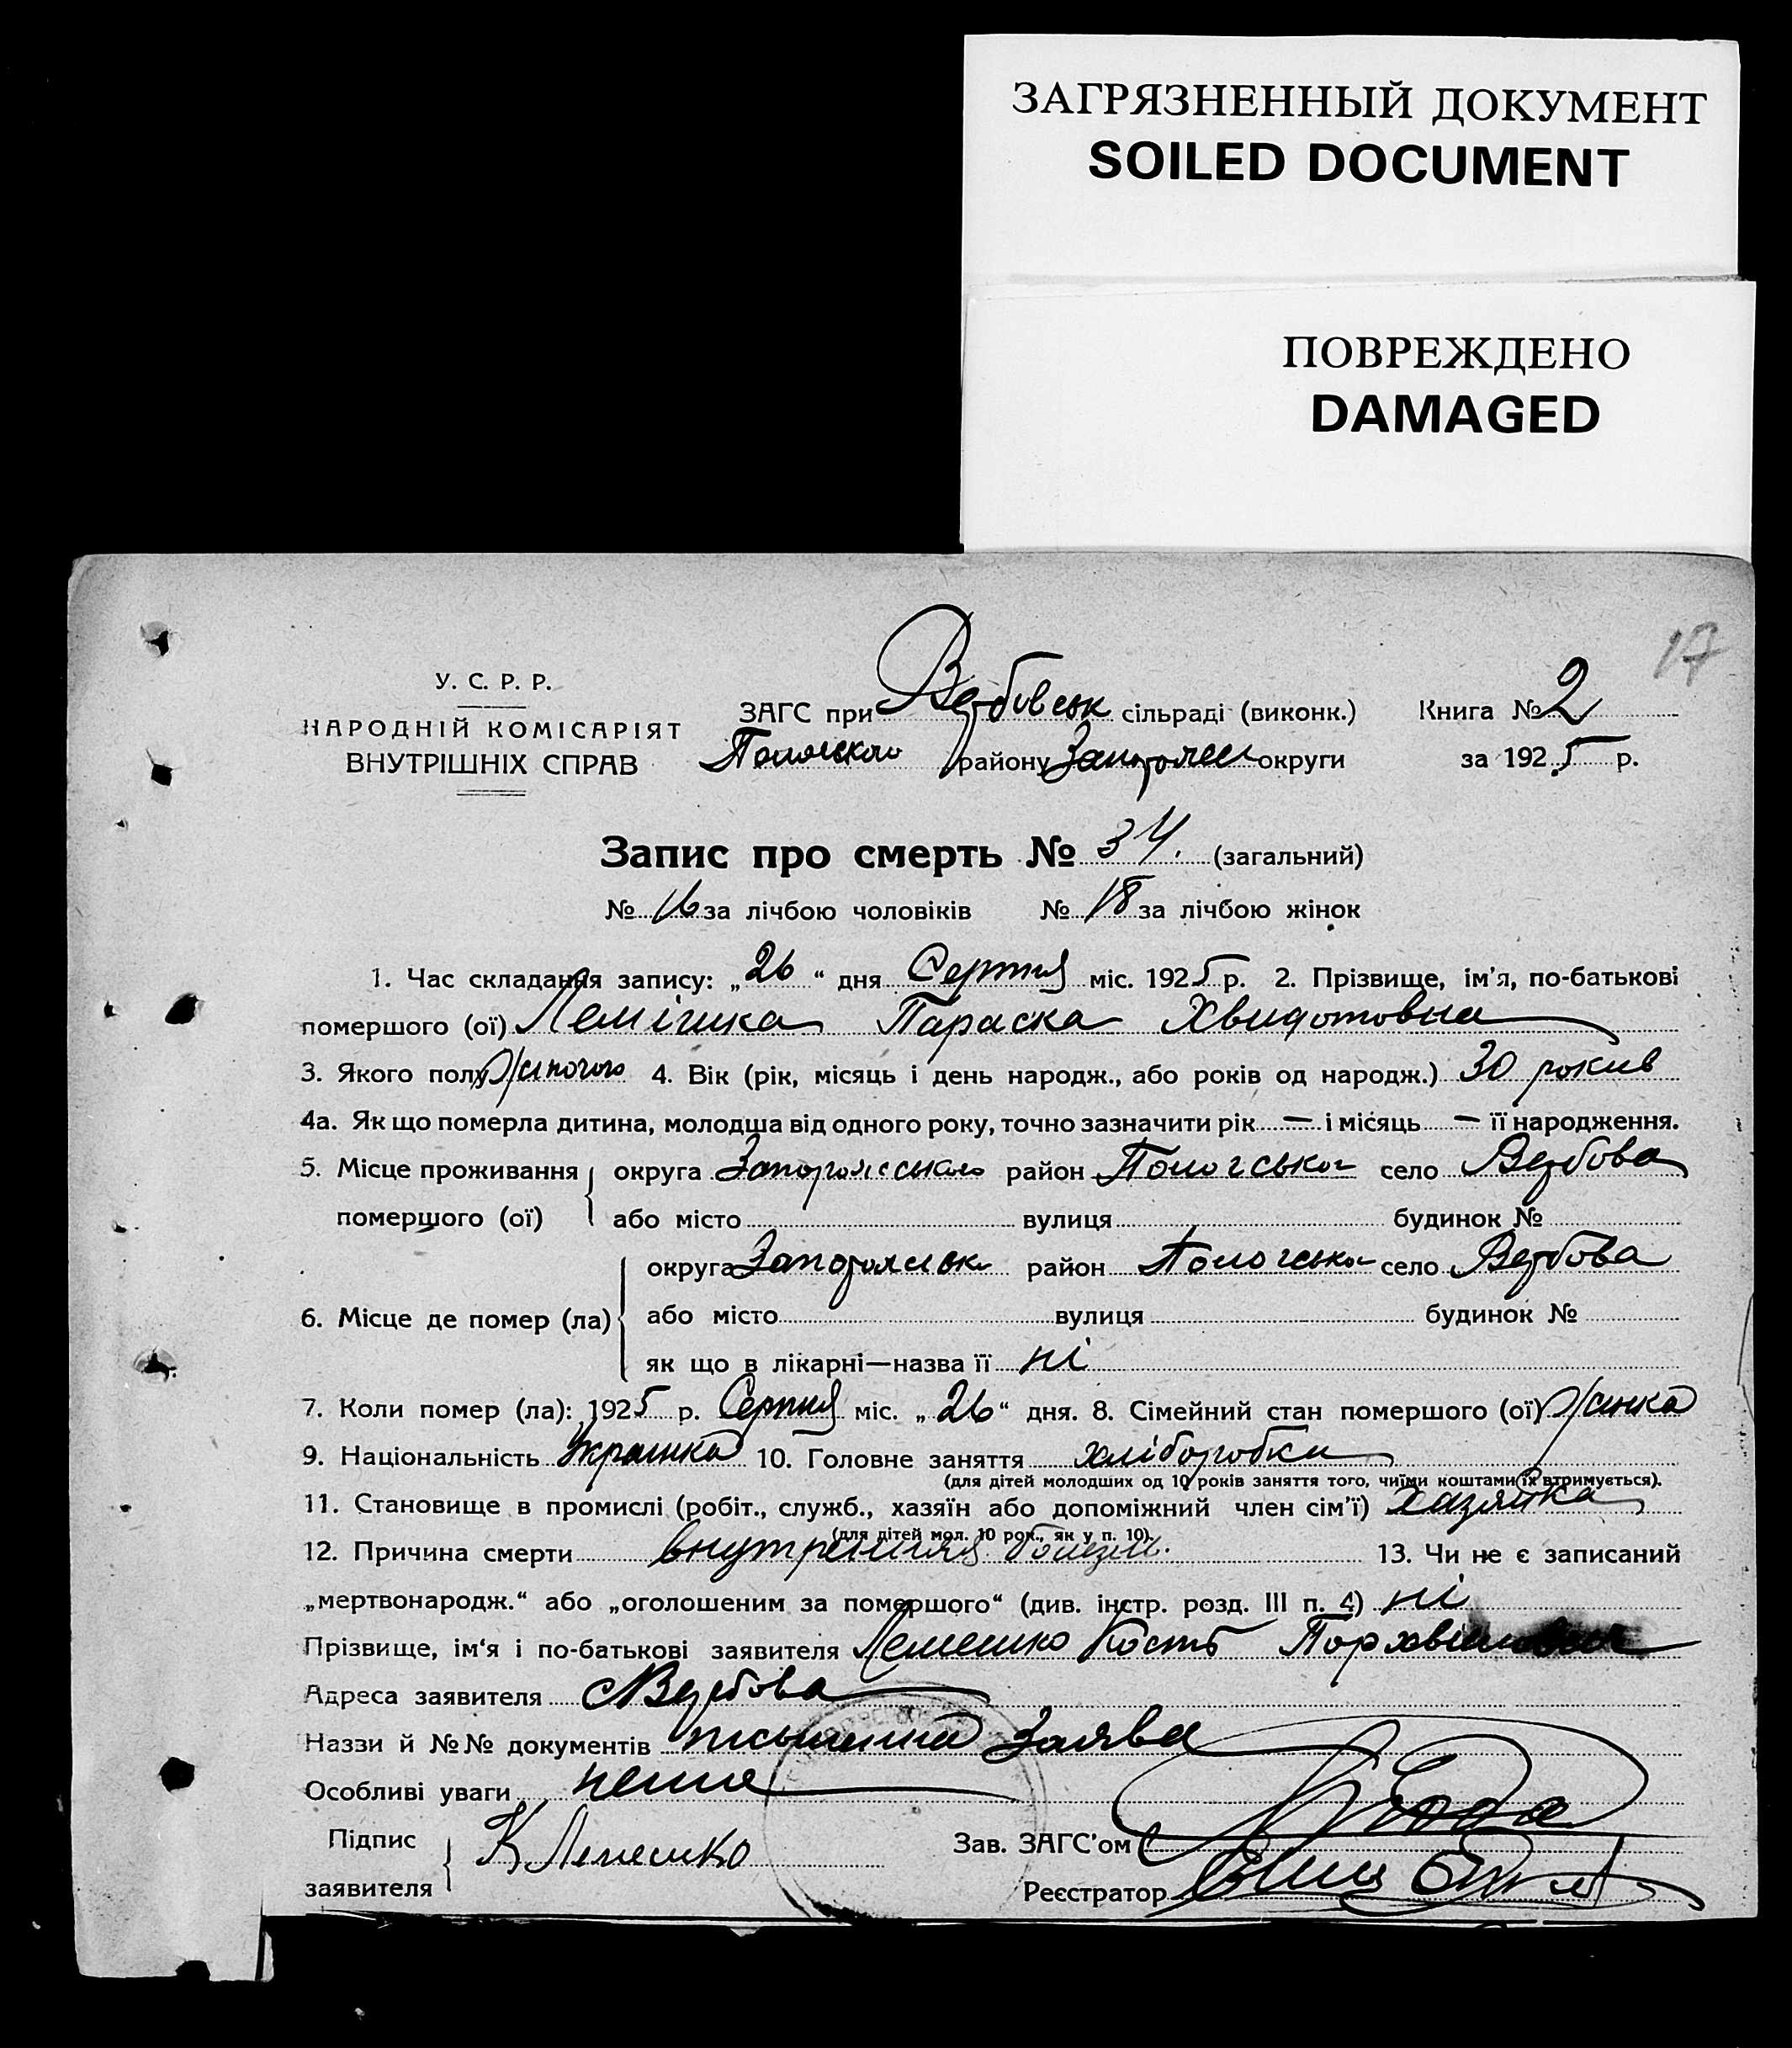 ЗАГРЯЗНЕННЫЙ ДОКУМЕНТ
SOILED DOCUMENT
ПОВРЕЖДЕНО
DAMAGED
17
У. С. Р. Р.
НАРОДНІЙ КОМІСАРІЯТ
ВНУТРІШНІХ СПРАВ
ЗАГС при Вербовськ сільраді (виконк.) Книга № 2
району округи за 1925 р.
Запис про смерть № 34. (загальний)
№ 16 за лічбою чоловіків № 18 за лічбою жінок
1. Час складання запису: „26“ дня Серпня міс. 1925 р. 2. Прізвище, ім'я, по-батькові
помершого (ої) Лемішка Параска Хвидотовна
3. Якого полу Жіночого 4. Вік (рік, місяць і день народж., або років од народж.) 30 рокив
4а. Як що померла дитина, молодша від одного року, точно зазначити рік — і місяць — її народження.
5. Місце проживання помершого (ої) округа район село Вербова
або місто вулиця будинок №
6. Місце де помер (ла) округа район село Вербова
або місто вулиця будинок №
як що в лікарні—назва її ні
7. Коли помер (ла): 1925 р. Серпня міс. „26“ дня. 8. Сімейний стан помершого (ої) Жинка
9. Національність Украинка 10. Головне заняття хліборобка
(для дітей молодших од 10 років заняття того, чиїми коштами їх втримується).
11. Становище в промислі (робіт., служб., хазяїн або допоміжний член сім'ї) хазяйка
(для дітей мол. 10 рок., як у п. 10).
12. Причина смерти внутренняя болезнь. 13. Чи не є записаний
„мертвонародж.“ або „оголошеним за помершого“ (див. інстр. розд. III п. 4) ні
Прізвище, ім'я і по-батькові заявителя Лемешко Кость
Адреса заявителя с Вербова
Наззи й №№ документів письменна Заява
Особливі уваги нема
Підпис заявителя К Лемешко
Зав. ЗАГС'ом
Реєстратор